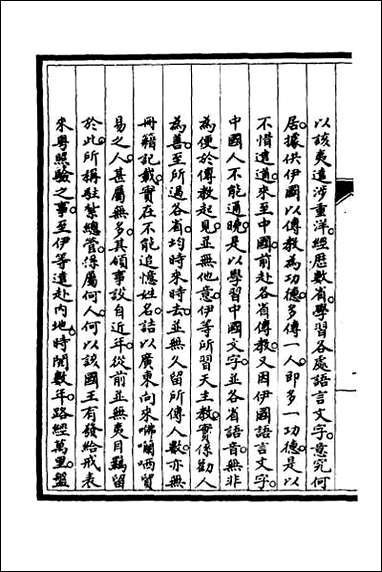 以該夷遠涉重洋經歷數省學習各處語言文字意究何
居據供伊國以傳教為功德多傳一人即多一功德是以
不惜遠道來至中國前赴各省傳教又因伊國語言文字
中國人不能通曉是以學習中國文字並各省語音無非
為便於傳教起見並無他意伊等所習天主教實係勸人
為善至所過各省均時來時去並無久留所傳人數亦無
冊籍記載實在不能追憶姓名詰以廣東向來咈囒哂貿
易之人甚屬無多其領事設自近年從前並無夷目羈留
於此所稱駐紮總管係屬何人何以該國王有發給戒表
來粵照驗之事至伊等遠赴內地時閱數年路經萬里盤